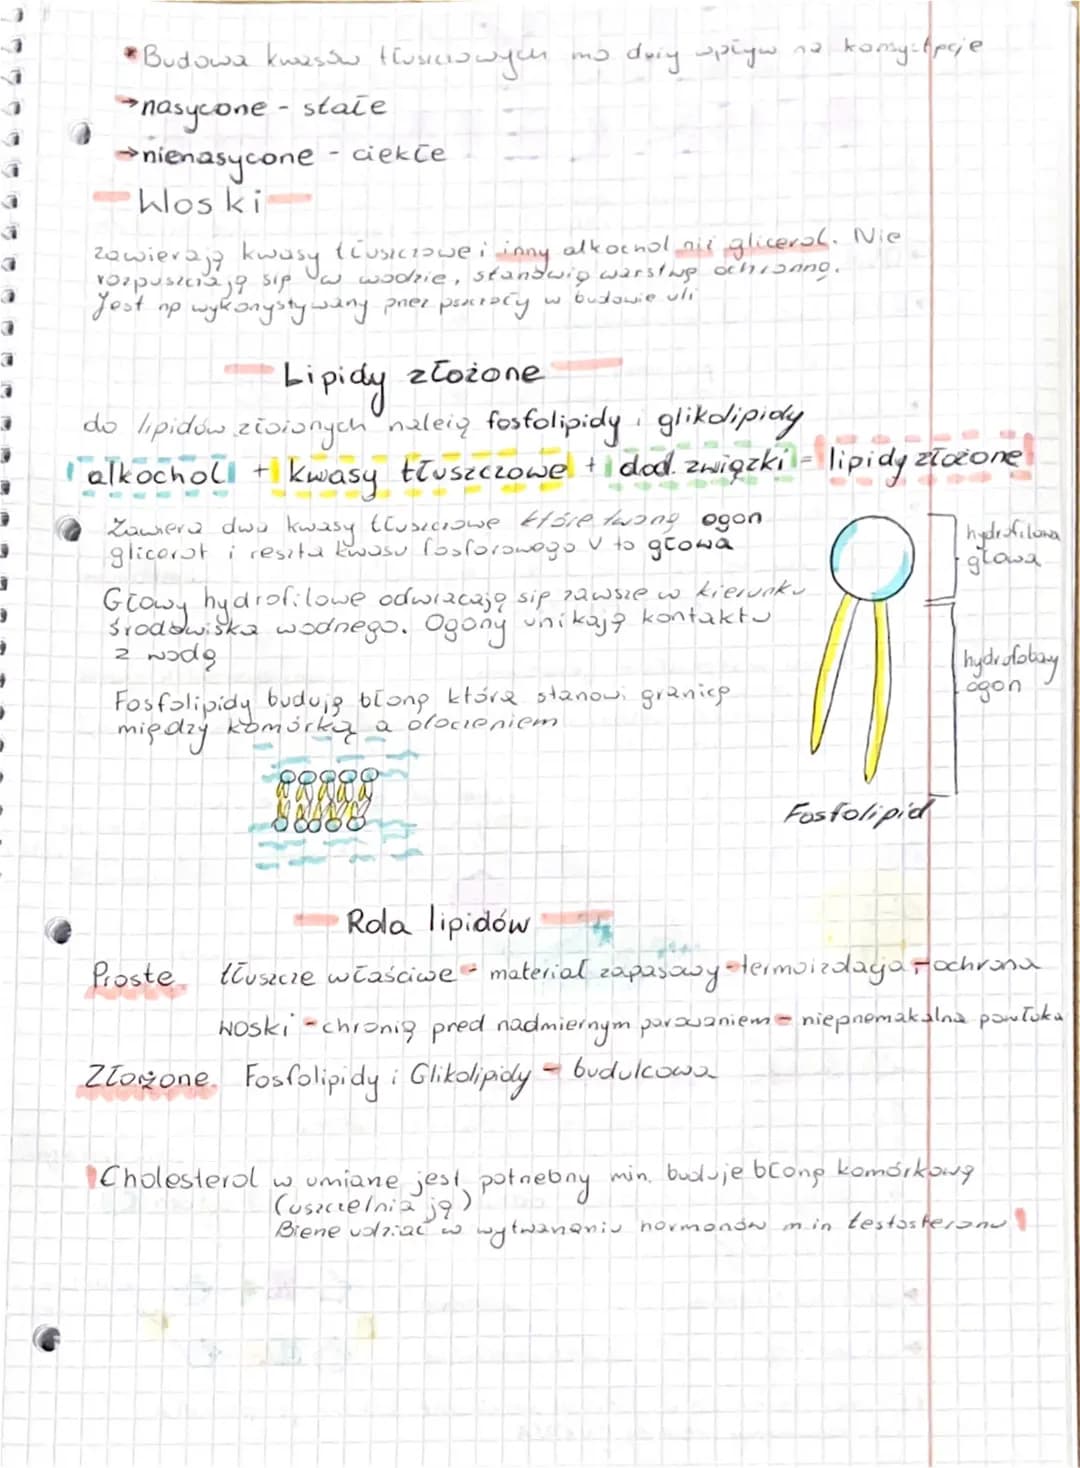 *Budowa kwasów tłuszczowych ma duży wpływ na konsystpcje
→nasycone - stałe
→nienasycone - ciekłe
Woski
zawierają kwasy tłuszczowe i inny alkochol niż glicerol. Nie
rozpuszczają sip w wodzie, stanowią warstwp ochronną.
Jest np wykorzystywany przez pszczoły w budowie uli
Lipidy złożone
do lipidów złożonych należą fosfolipidy i glikolipidy
alkochol + kwasy tłuszczowe + dod. związki = lipidy złożone
Zawiera dwa kwasy tłuszczowe które tworzą ogon
glicerol i reszta kwasu fosforowego V to głowa
hydrofilowa
głowa
Głowy hydrofilowe odwracają sip zawsze w kierunku
środowiska wodnego. Ogony unikają kontaktu
z wodą
hydrofobowy
ogon
Fosfolipidy budują błonp która stanowi granicp
między komórką a otoczeniem
Fosfolipid
Rola lipidów
Proste tłuszcze właściwe - materiał zapasowy - termoizolacja - ochrona
woski - chronią pred nadmiernym parowaniem - niepnemakalna powłoka
Złorzone Fosfolipidy i Glikolipidy - budulcowa
!Cholesterol w umiarze jest potnebny min. buduje błonp komórkową
(uszczelnia ją)
Biene udział w wytwarzaniu hormonów m.in testosteronu!